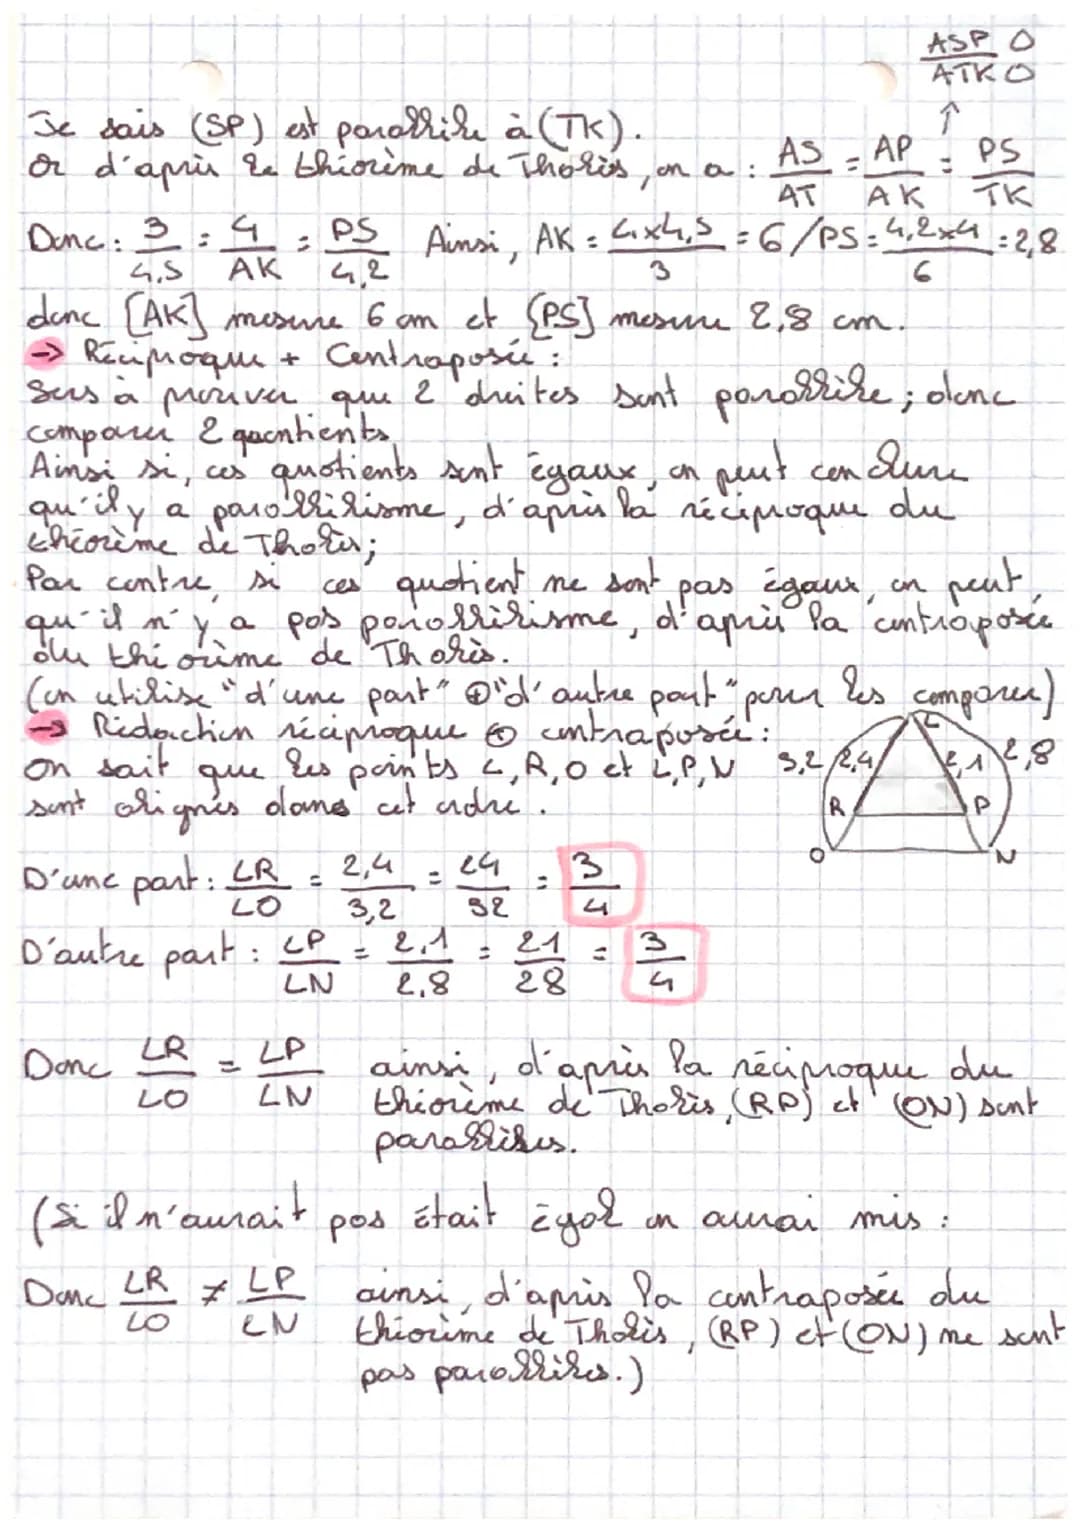 ASP O
ATK O
↑
Je sais (SP) est parallèle à (TK).
Or d'après le théorème de Thalès, on a : AS/AT = AP/AK = PS/TK
Donc : 3/4,5 = 4/AK = PS/4,2 Ainsi, AK = 4x4,5/3 = 6 / PS = 4,2x4/6 = 2,8
donc [AK] mesure 6 cm et [PS] mesure 2,8 cm.
→ Réciproque + Contraposée :
Sers à prouver que 2 droites sont parallèle ; donc
comparer 2 quontients
Ainsi si, ces quotients sont égaux, on peut conclure
qu'il y a parallélisme, d'après la réciproque du
théorème de Thalès ;
Par contre, si ces quotient ne sont pas égaux, on peut,
qu'il n'y a pas parallélisme, d'après la contraposée
du théorème de Thalès.
(on utilise "d'une part" ⊕ "d'autre part" pour les comparer)
→ Rédaction réciproque ⊕ contraposée :
On sait que les points L, R, O et L, P, N
sont alignés dans cet ordre.
L
3,2 2,4 2,1 2,8
R P
O N
D'une part : LR/LO = 2,4/3,2 = 24/32 = 3/4
D'autre part : LP/LN = 2,1/2,8 = 21/28 = 3/4
Donc LR/LO = LP/LN ainsi, d'après la réciproque du
théorème de Thalès, (RP) et (ON) sont
parallèles.
(Si il n'aurait pas était égal on aurai mis :
Donc LR/LO ≠ LP/LN ainsi, d'après la contraposée du
théorème de Thalès, (RP) et (ON) ne sont
pas parallèles.)